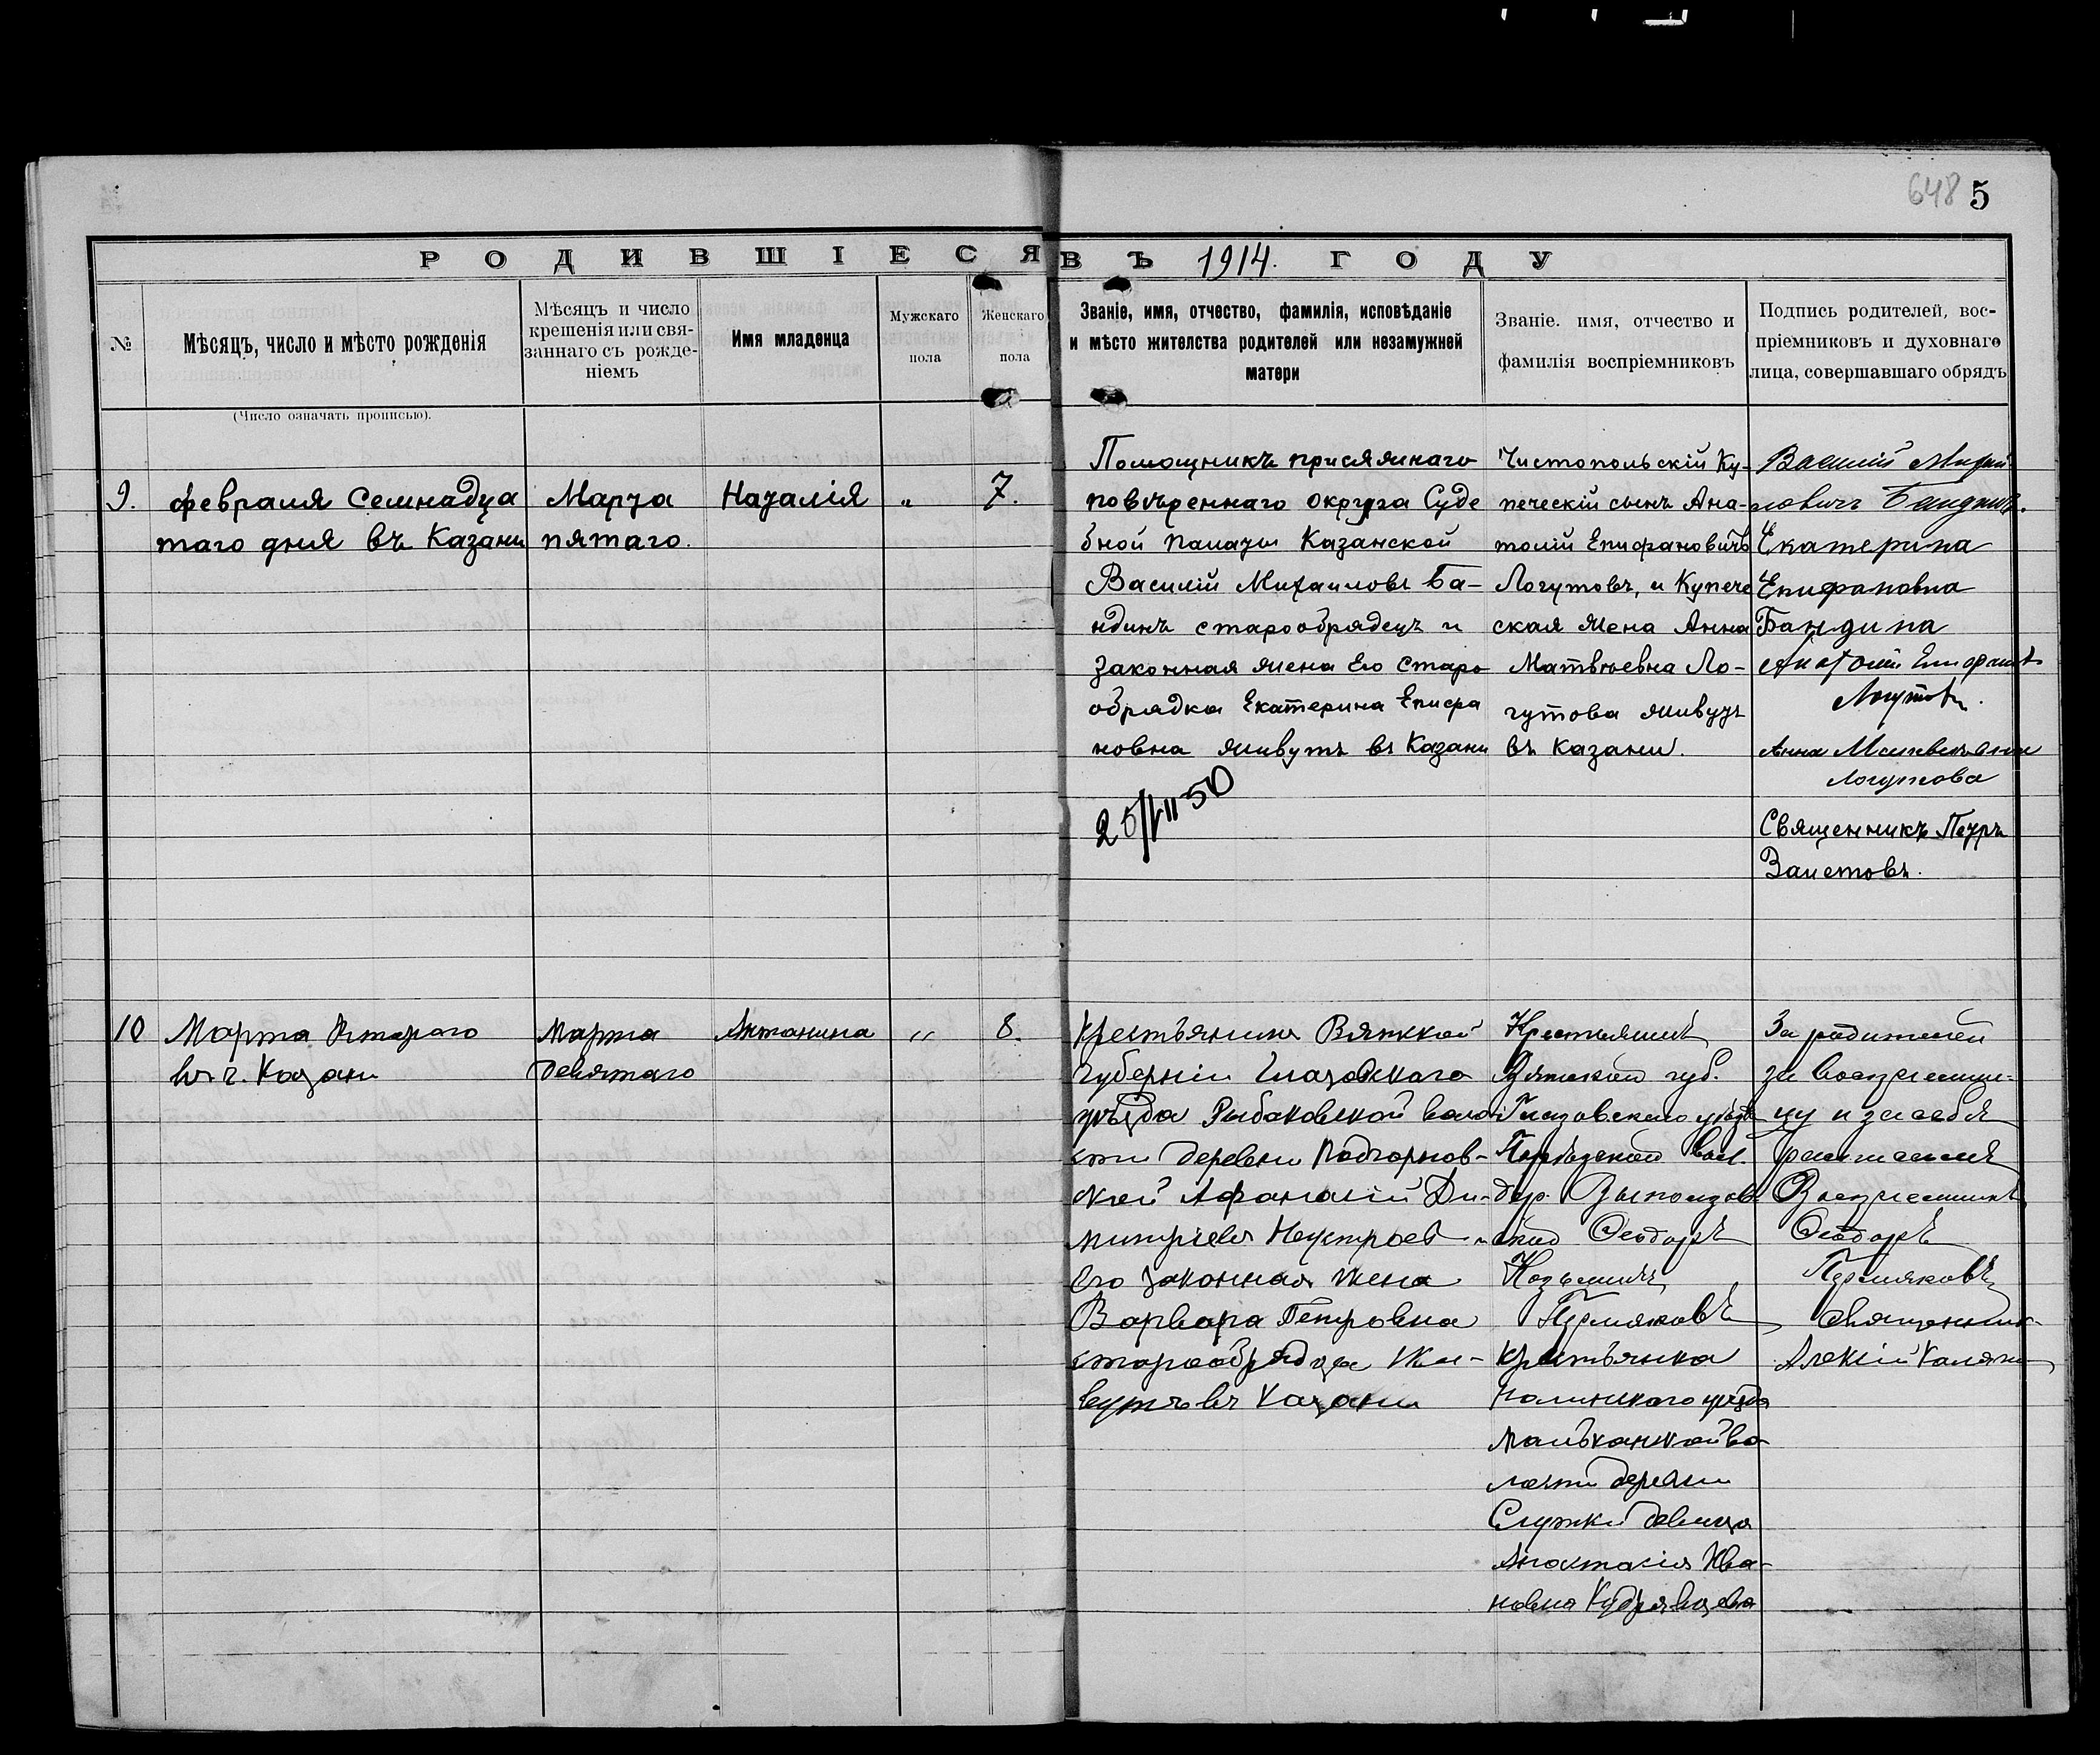 648 5
РОДИВШІЕСЯ ВЪ 1914. ГОДУ
№
Мѣсяцъ, число и мѣсто рожденія
(Число означать прописью).
Мѣсяцъ и число
крещенія или свя-
заннаго съ рожде-
ніемъ
Имя младенца
Мужскаго
пола
Женскаго
пола
Званіе, имя, отчество, фамилія, исповѣданіе
и мѣсто жителства родителей или незамужней
матери
Званіе. имя, отчество и
фамилія воспріемниковъ
Подпись родителей, вос-
пріемниковъ и духовнаго
лица, совершавшаго обрядъ
9.
февраля Семнадца
таго дня въ Казани
Марта
пятаго.
Наталія
"
7.
Помощникъ присяжнаго
повѣреннаго округа Суде
бной палаты Казанской
Василій Михаиловъ Ба-
ндинъ старообрядецъ и
законная жена Его старо
обрядка Екатерина Епифа
новна живутъ въ Казани
Чистопольскій Ку-
печескій сынъ Ана-
толій Епифановичъ
Логутовъ, и Купече
ская жена Анна
Матвѣевна Ло-
гутова живутъ
въ Казани.
Василій Михай
ловичъ Бандинъ.
Екатерина
Епифановна
Бандина
Анатолій
Логутовъ.
Анна
Логутова
Священникъ Петръ
Залетовъ.
10
Марта Втораго
въ г. Казани
Марта
Девятаго
Антанина
"
8.
Крестьянинъ Вятской
Губерніи Глазовского
уѣзда Рыбаковской волос
сти деревни Подгорнов-
ской Афанасій Ди-
митріевъ и
его законная жена
Варвара Петровна
старообрядца Жи-
вутъ въ Казани
Крестьянинъ
Вятской губ.
Глазовскаго уѣзда
вол.
дер.
Ѳеодоръ
Козьмичъ
Пермяковъ
крестьянка
уѣзда
во
лости деревни
девица
Анастасія Ива-
новна Кудрявцева
За родителей
за воспріемни-
цу и за себя
росписался
Воспріемникъ
Ѳеодоръ
Пермяковъ
Священник
Алексій Калягин